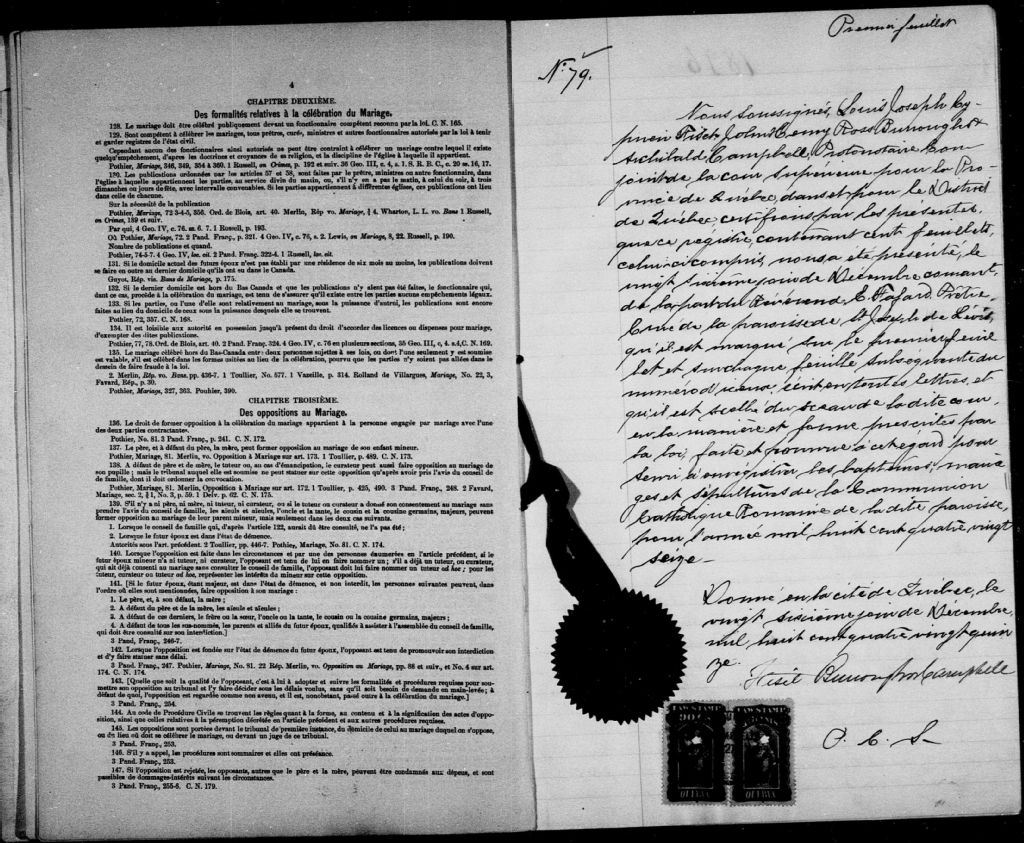 4
CHAPITRE DEUXIÈME.
Des formalités relatives à la célébration du Mariage.
128. Le mariage doit être célébré publiquement devant un fonctionnaire compétent reconnu par la loi. C. N. 165.
129. Sont compétents à célébrer les mariages, tous prêtres, curés, ministres et autres fonctionnaires autorisés par la loi à tenir
et garder registres de l'état civil.
Cependant aucun des fonctionnaires ainsi autorisés ne peut être contraint à célébrer un mariage contre lequel il existe
quelqu'empêchement, d'après les doctrines et croyances de sa religion, et la discipline de l'église à laquelle il appartient.
Pothier, Mariage, 346, 349, 354 à 360. 1 Russell, on Crimes, p. 192 et suiv. 36 Geo. III, c. 4, s. 1, S. R. B. C., c. 20 ss. 16, 17.
130. Les publications ordonnées par les articles 57 et 58, sont faites par le prêtre, ministre ou autre fonctionnaire, dans
l'église à laquelle appartiennent les parties, au service divin du matin, ou, s'il n'y en a pas le matin, à celui du soir, à trois
dimanches ou jours de fête, avec intervalle convenables. Si les parties appartiennent à différentes églises, ces publications ont lieu
dans celle de chacune.
Sur la nécessité de la publication
Pothier, Mariage, 72 3-4-5, 356. Ord. de Blois, art. 40. Merlin, Rép vo. Mariage, § 4. Wharton, L. L. vo. Bans 1 Russell,
on Crimes, 189 et suiv.
Par qui, 4 Geo. IV, c. 76. ss 6. 7. 1 Russell, p. 193.
Où Pothier, Mariage, 72. 2 Pand. Franç., p. 321. 4 Geo. IV, c. 76, s. 2. Lewis, on Mariage, 8, 22. Russell, p. 190.
Nombre de publications et quand.
Pothier, 74-5-7. 4 Geo. IV, loc. cit. 2 Pand. Franç. 322-4. 1 Russell, loc. cit.
131. Si le domicile actuel des futurs époux n'est pas établi par une résidence de six mois au moins, les publications doivent
se faire en outre au dernier domicile qu'ils ont eu dans le Canada.
Guyot, Rép. vis. Bans de Mariage, p. 175.
132. Si le dernier domicile est hors du Bas Canada et que les publications n'y aient pas été faites, le fonctionnaire qui,
dant ce cas, procède à la célébration du mariage, est tenu de s'assurer qu'il existe entre les parties aucuns empêchements légaux.
133. Si les parties, ou l'une d'elle sont relativement au mariage, sous la puissance d'autrui, les publications sont encore
faites au lieu du domicile de ceux sous la puissance desquels elle se trouvent.
Pothier, 72, 357. C. N. 168.
134. Il est loisible aux autorité en possession jusqu'à présent du droit d'accorder des licences ou dispenses pour mariage,
d'exempter des dites publications.
Pothier, 77, 78. Ord. de Blois, art. 40. 2 Pand. Franç. 324. 4 Geo. IV, c. 76 en plusieurs sections, 35 Geo. III, c, 4. s.4, C. N. 169.
135. Le mariage célébré hors du Bas-Canada entre deux personnes sujettes à ses lois, ou dont l'une seulement y est soumise
est valable, s'il est célébré dans les formes usitées au lieu de la célébration, pourvu que les parties n'y soient pas allées dans le
dessein de faire fraude à la loi.
2. Merlin, Rép. vo. Bans, pp. 436-7. 1 Toullier, No. 577. 1 Vazeille, p. 314. Rolland de Villargues, Mariage, No. 22, 3,
Favard, Rép., p. 30.
Pothier, Mariage, 327, 263. Pouhier, 390.
CHAPITRE TROISIÈME.
Des oppositions au Mariage.
136. Le droit de former opposition à la célébration du mariage appartient à la personne engagée par mariage avec l'une
des deux parties contractantes.
Pothier, No. 81. 3 Pand. Franç., p. 241. C. N. 172.
137. Le père, et à défaut du père, la mère, peut former opposition au mariage de son enfant mineur.
Pothier, Mariage, 81. Merlin, vo. Opposition à Mariage sur art. 173. 1 Toullier, p. 489. C. N. 173.
138. A défaut de père et de mère, le tuteur ou, au cas d'émancipation, le curateur peut aussi faire opposition au mariage de
son pupille; mais le tribunal auquel elle est soumise ne peut statuer sur cette opposition qu'après avoir pris l'avis du conseil de
famille, dont il doit ordonner la convocation.
Pothier, Mariage, 81. Merlin, Opposition à Mariage sur art. 172. 1 Toullier, p. 425, 490. 3 Pand. Franç., 248. 2 Favard,
Mariage, sec. 2, § 1, No. 3, p. 59. 1 Delv. p. 62. C. N. 175.
139. S'il y a ni père, ni mère, ni tuteur, ni curateur, ou si le tuteur ou curateur a donné son consentement au mariage sans
prendre l'avis du conseil de famille, les aïeuls et aïeules, l'oncle et la tante, le cousin et la cousine germains, majeurs, peuvent
former opposition au mariage de leur parent mineur, mais seulement dans les deux cas suivants.
1. Lorsque le conseil de famille qui, d'après l'article 122, aurait dû être consulté, ne l'a pas été;
2. Lorsque le futur époux est dans l'état de démence.
Autorités sous l'art. précédent. 2 Toullier, pp. 446-7. Pothier, Mariage, No. 81. C. N. 174.
140. Lorsque l'opposition est faite dans les circonstances et par une des personnes énumérées en l'article précédent, si le
futur époux mineur n'a ni tuteur, ni curateur, l'opposant est tenu de lui en faire nommer un; s'il a déjà un tuteur, ou curateur,
qui ait déjà consenti au mariage sans consulter le conseil de famille, l'opposant doit lui faire nommer un tuteur ad hoc; pour les
tuteur, curateur ou tuteur ad hoc, représenter les intérêts du mineur sur cette opposition.
141. [Si le futur époux, étant majeur, est dans l'état de démence, et non interdit, les personnes suivantes peuvent, dans
l'ordre où elles sont mentionnées, faire opposition à son mariage:
1. Le père, et, à son défaut, la mère;
2. A défaut du père et de la mère, les aïeuls et aïeules;
3. A défaut de ces derniers, le frère ou la sœur, l'oncle ou la tante, le cousin ou la cousine germains, majeurs;
4. A défaut de tous les sus-nommés, les parents et alliés du futur époux, qualifiés à assister à l'assemblée du conseil de famille,
qui doit être consulté sur son interdiction.]
3 Pand. Franç., 246-7.
142. Lorsque l'opposition est fondée sur l'état de démence du futur époux, l'opposant est tenu de promouvoir son interdiction
et d'y faire statuer sans délai.
3 Pand. Franç., 247. Pothier, Mariage, No. 81. 22 Rép. Merlin, vo. Opposition au Mariage, pp. 88 et suiv., et No. 4 sur art.
174. C. N. 174.
143. [Quelle que soit la qualité de l'opposant, c'est à lui à adopter et suivre les formalités et procédures requises pour sou-
mettre son opposition au tribunal et l'y faire décider sous les délais voulus, sans qu'il soit besoin de demande en main-levée; à
défaut de quoi, l'opposition est regardée comme non avenu, et il est, nonobstant, passé outre à la célébration du mariage.]
3 Pand. Franç., 254.
144. Au code de Procédure Civile se trouvent les règles quant à la forme, au contenu et à la signification des actes d'oppo-
sition, ainsi que celles relatives à la péremption décrétée en l'article précédent et aux autres procédures requises.
145. Les oppositions sont portées devant le tribunal de première instance, du domicile de celui au mariage duquel on s'oppose,
ou du lieu où doit se célébrer le mariage, ou devant un juge de ce tribunal.
3 Pand. Franç., 253.
146. S'il y a appel, les procédures sont sommaires et elles ont préséance.
3 Pand. Franç., 253.
147. Si l'opposition est rejetée, les opposants, autres que le père et la mère, peuvent être condamnés aux dépens, et sont
passibles de dommages-intérêts suivant les circonstances.
3 Pand. Franç., 255-6. C. N. 179.
Premier feuillet
No. 79.
Nous soussignés, Louis Joseph Cy-
prien Fiset, John Henry Ross Burroughs &
Archibald Campbell, Protonotaire Con-
joint de la cour supérieure pour la Pro-
vince de Québec, dans et pour le District
de Québec, certifions par les présentes,
que ce régistre, contenant cent feuillets,
celui-ci compris, nous a été présenté, le
vingt sixième jour de Décembre courant,
de la part du Révérend E. Fafard, Prêtre,
Curé de la paroisse de St Joseph de Lévis,
qu'il est marqué sur le premier feuil
let et sur chaque feuille subséquente du
numéro d'iceux, écrit en toutes lettres, et
qu'il est scellé du sceau de la dite cour,
en la manière et forme prescrites par
la loi, faite et pourvue à cet égard pour
servir à enregistrer les baptêmes, maria
ges et sépultures de la Communion
Catholique Romaine de la dite paroisse,
pour l'année mil huit cent quatre vingt
seize.
Donné en la cité de Québec, le
vingt sixième jour de Décembre,
mil huit cent quatre vingt quin
ze.
Fiset Burroughs Campbell
P. C. S.
LAW STAMP
LAW STAMP
QUEBEC
QUEBEC